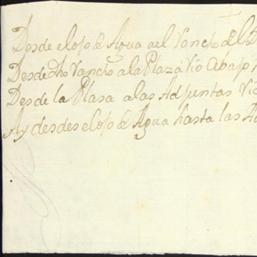 Desde el ojo de Agua del Rancho del
Desde dho Rancho a la Plaza Rio Abajo
Desde la Plasa a las Adjuntas
Ay desdes el ojo de Agua hasta las